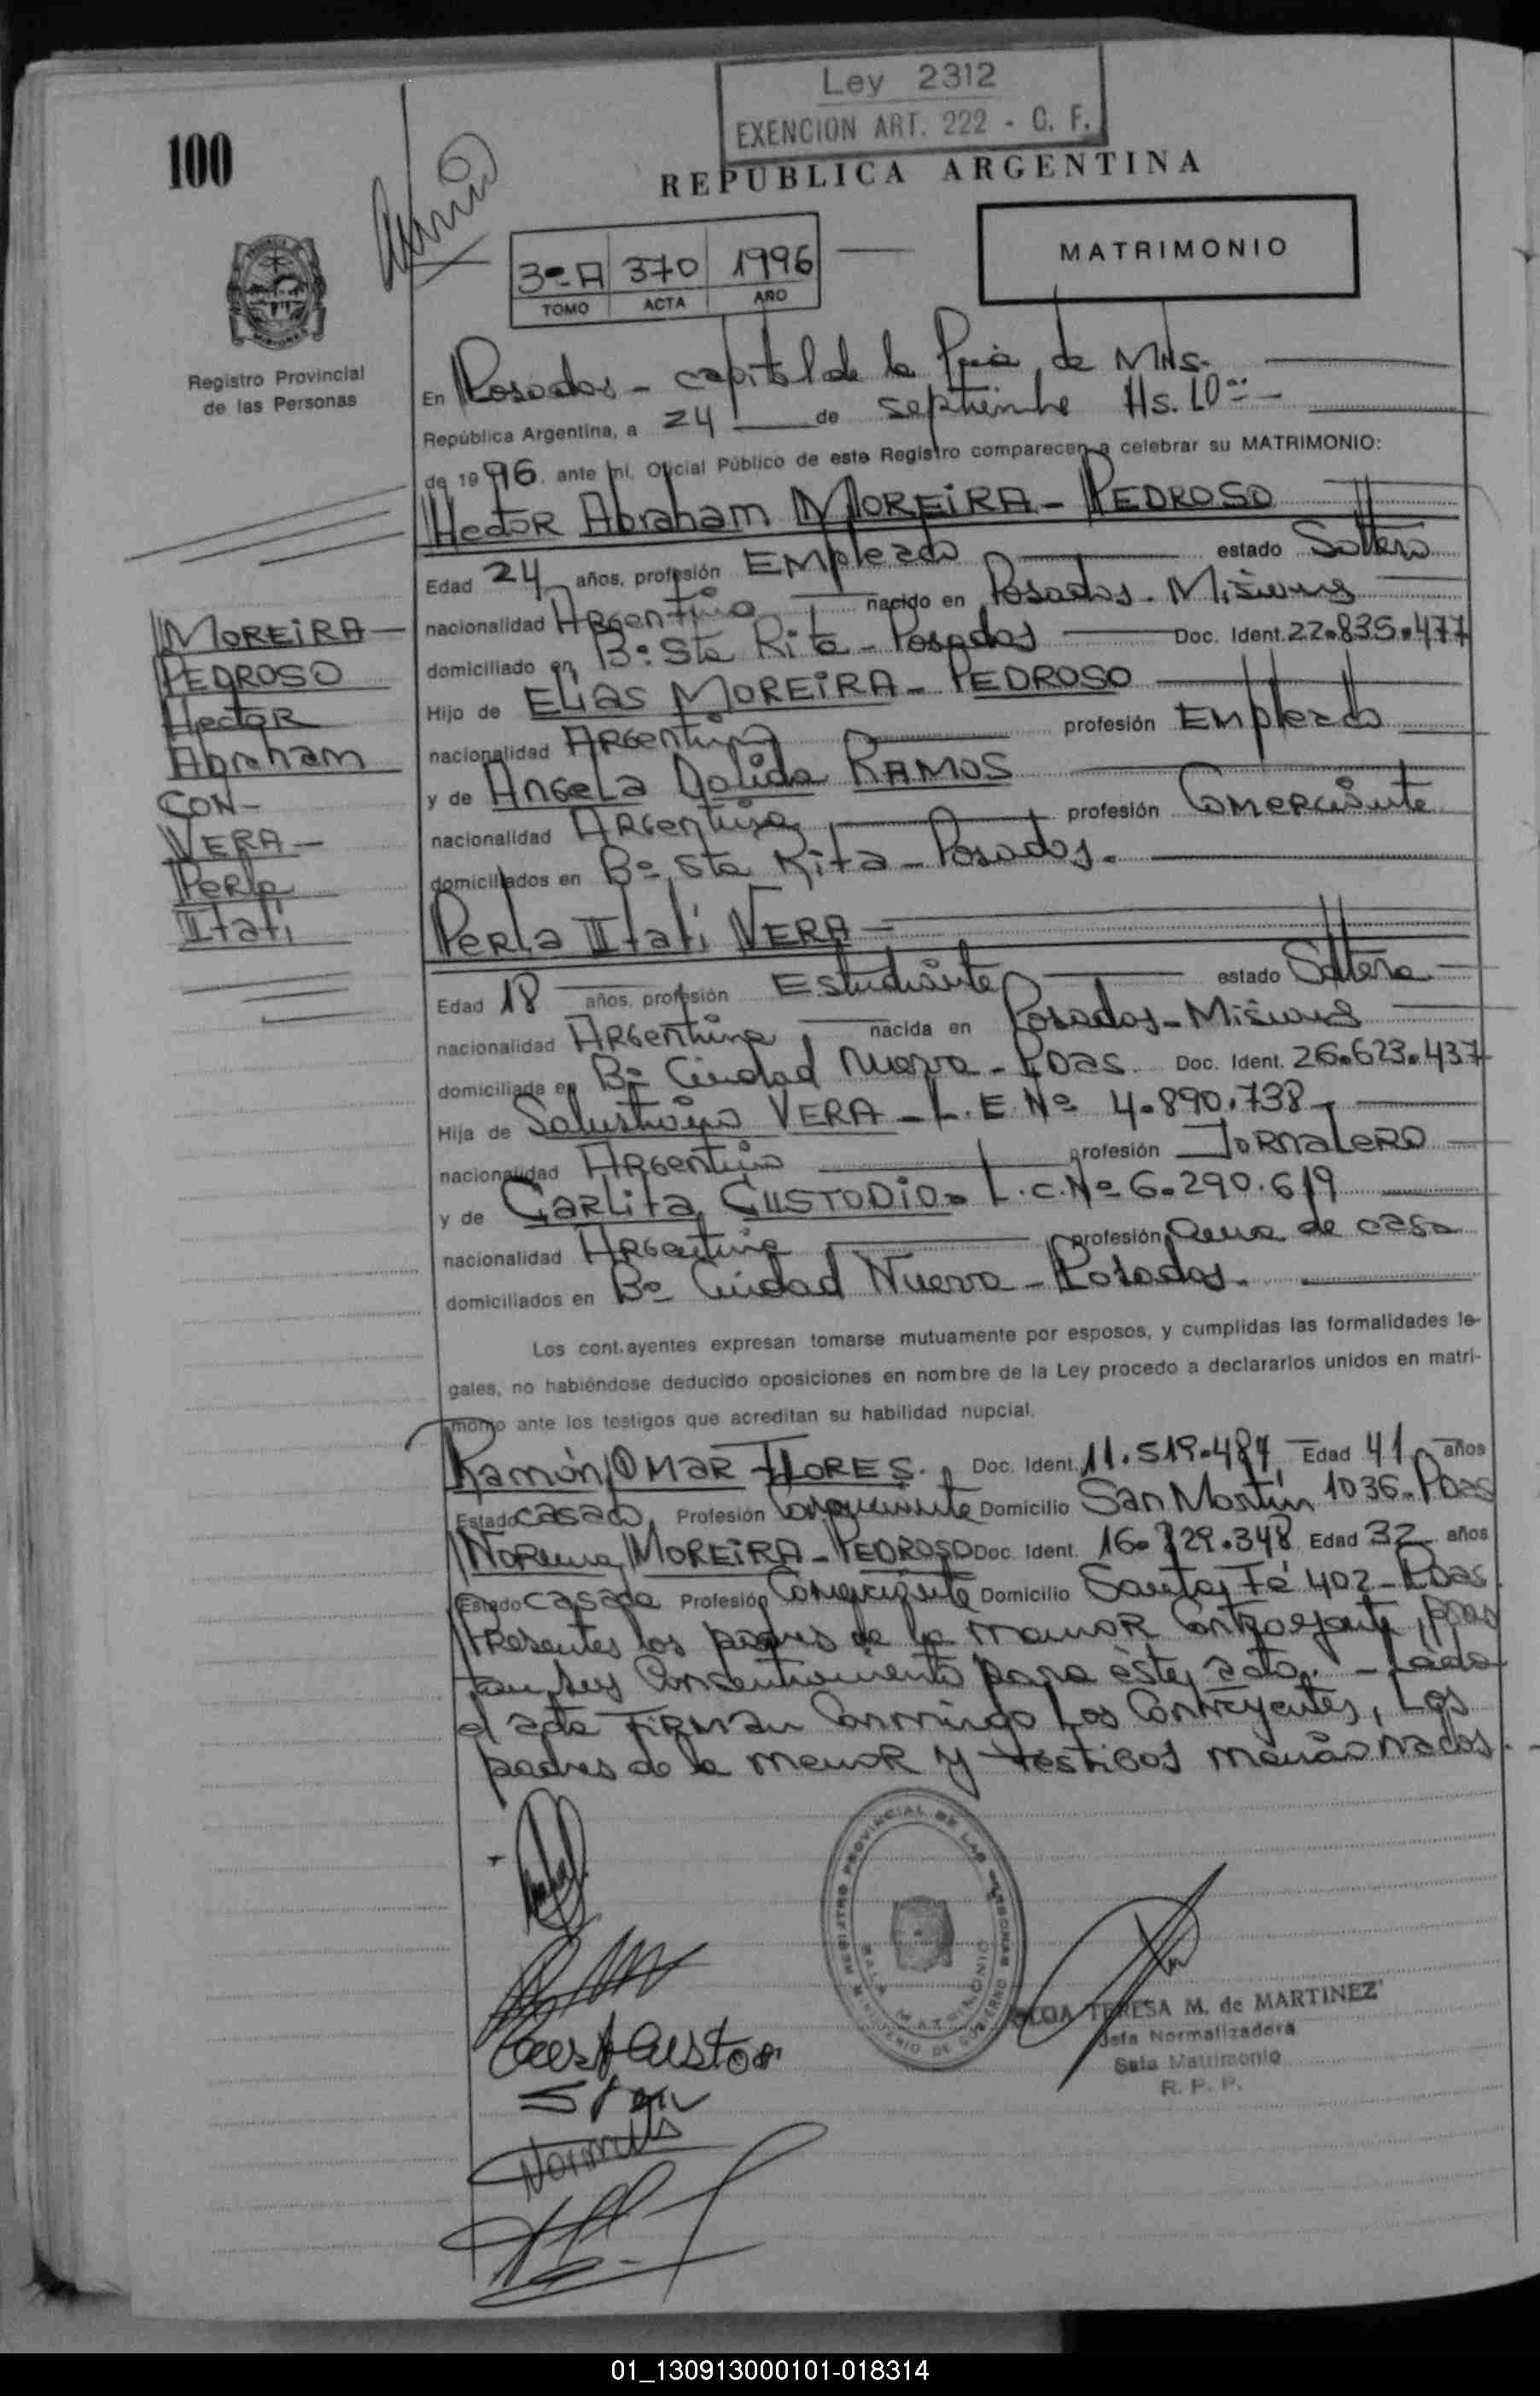 Ley 2312
EXENCION ART. 222 - C. F.
100
REPUBLICA ARGENTINA
MATRIMONIO
3º-A 370 1996
TOMO ACTA AÑO
Registro Provincial
de las Personas
En Posadas - capital de la Pcia de Mns.
República Argentina, a 24 de septiembre Hs. 10
de 1996. ante mí, Oficial Público de este Registro comparecen a celebrar su MATRIMONIO:
Hector Abraham MOREIRA - PEDROSO
Edad 24 años, profesión Empleado estado Soltero
nacionalidad Argentino nacido en Posadas - Misiones
domiciliado en Bº Sta Rita - Posadas Doc. Ident. 22.835.477
Hijo de Elias MOREIRA - PEDROSO
nacionalidad Argentino profesión Empleado
y de Angela Dalida RAMOS
nacionalidad Argentina profesión Comerciante
domiciliados en Bº Sta Rita - Posadas.
MOREIRA -
PEDROSO
Hector
Abraham
CON -
VERA -
Perla
Itatí
Perla Itatí VERA -
Edad 18 años, profesión Estudiante estado Soltera
nacionalidad Argentina nacida en Posadas - Misiones
domiciliada en Bº Ciudad Nueva - Pdas. Doc. Ident. 26.623.437
Hija de VERA - L.E. Nº 4.890.738 -
nacionalidad Argentino profesión Jornalero
y de Carlita CUSTODIO - L.C. Nº 6.290.619
nacionalidad Argentina profesión ama de casa
domiciliados en Bº Ciudad Nueva - Posadas.
Los cont.ayentes expresan tomarse mutuamente por esposos, y cumplidas las formalidades le-
gales, no habiéndose deducido oposiciones en nombre de la Ley procedo a declararlos unidos en matri-
monio ante los testigos que acreditan su habilidad nupcial.
Ramón Omar FLORES. Doc. Ident. 11.519.484 Edad 41 años
Estado casado Profesión Domicilio San Martín 1036 - Pdas
MOREIRA - PEDROSO Doc. Ident. 16.829.348 Edad 32 años
Estado casada Profesión Comerciante Domicilio Santa Fé 402 - Pdas
Presentes los padres de la menor contrayente, pres
tan su consentimiento para éste acto. - Leída
el acta firman conmigo los contrayentes, los
padres de la menor y testigos mencionados.
REGISTRO PROVINCIAL DE LAS PERSONAS
SALA MATRIMONIO
MINISTERIO DE GOBIERNO
TERESA M. de MARTINEZ
Jefa Normalizadora
Sala Matrimonio
R. P. P.
01_130913000101-018314